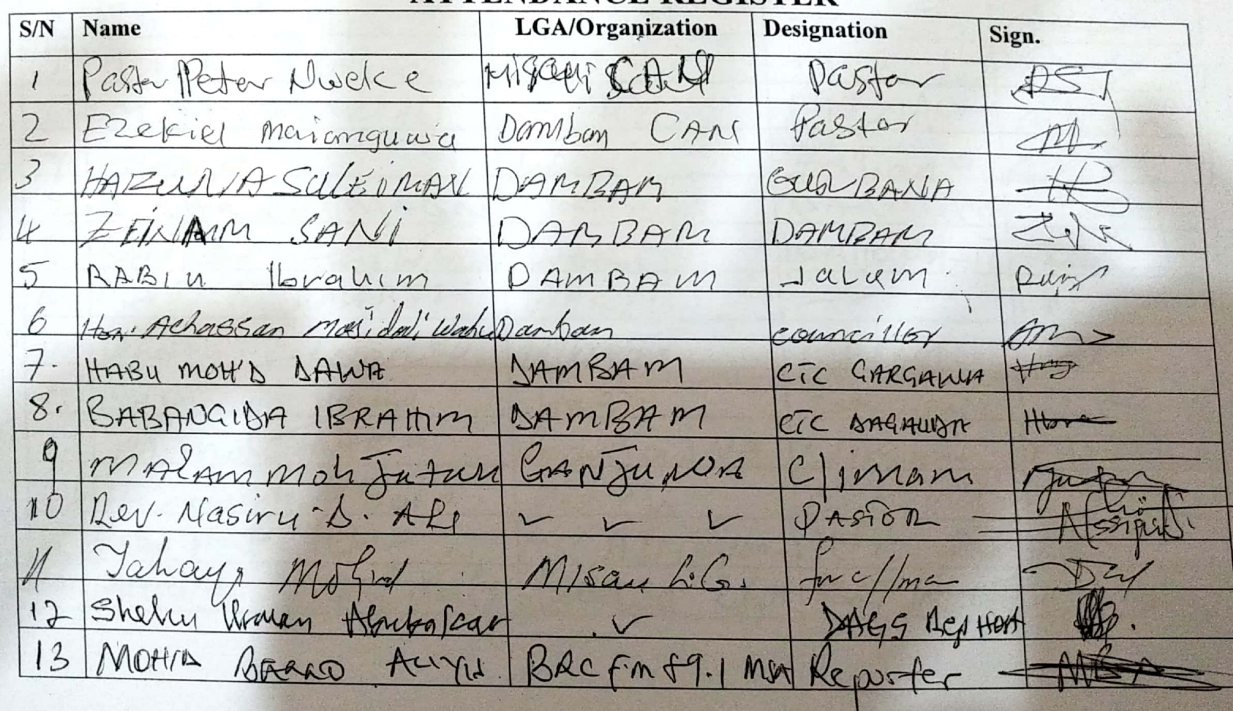 ATTENDANCE REGISTER
S/N Name LGA/Organization Designation Sign.
1 Pastor Peter Nweke Misau CAN Pastor
2 Ezekiel Maianguwa Dambam CAN Pastor
3 HARUNA SULEIMAN DAMBAM
4 ZEINAM SANI DAMBAM DAMBAM
5 RABIU Ibrahim DAMBAM Jalam
6 Hon. Achassan Damban councillor
7. HABU MOH'D DAWA DAMBAM CTC GARGAWA
8. BABANGIDA IBRAHIM DAMBAM CTC DAGAUDA
9 MALAM MOH Jatau GANJUWA C/imam
10 Rev. Nasiru D. ✓ ✓ ✓ PASTOR
11 Yahaya Mohd Misau L.G.
12 Shehu Usman Abubakar ✓
13 MOH'D ALIYU BRC fm 89.1 Reporter